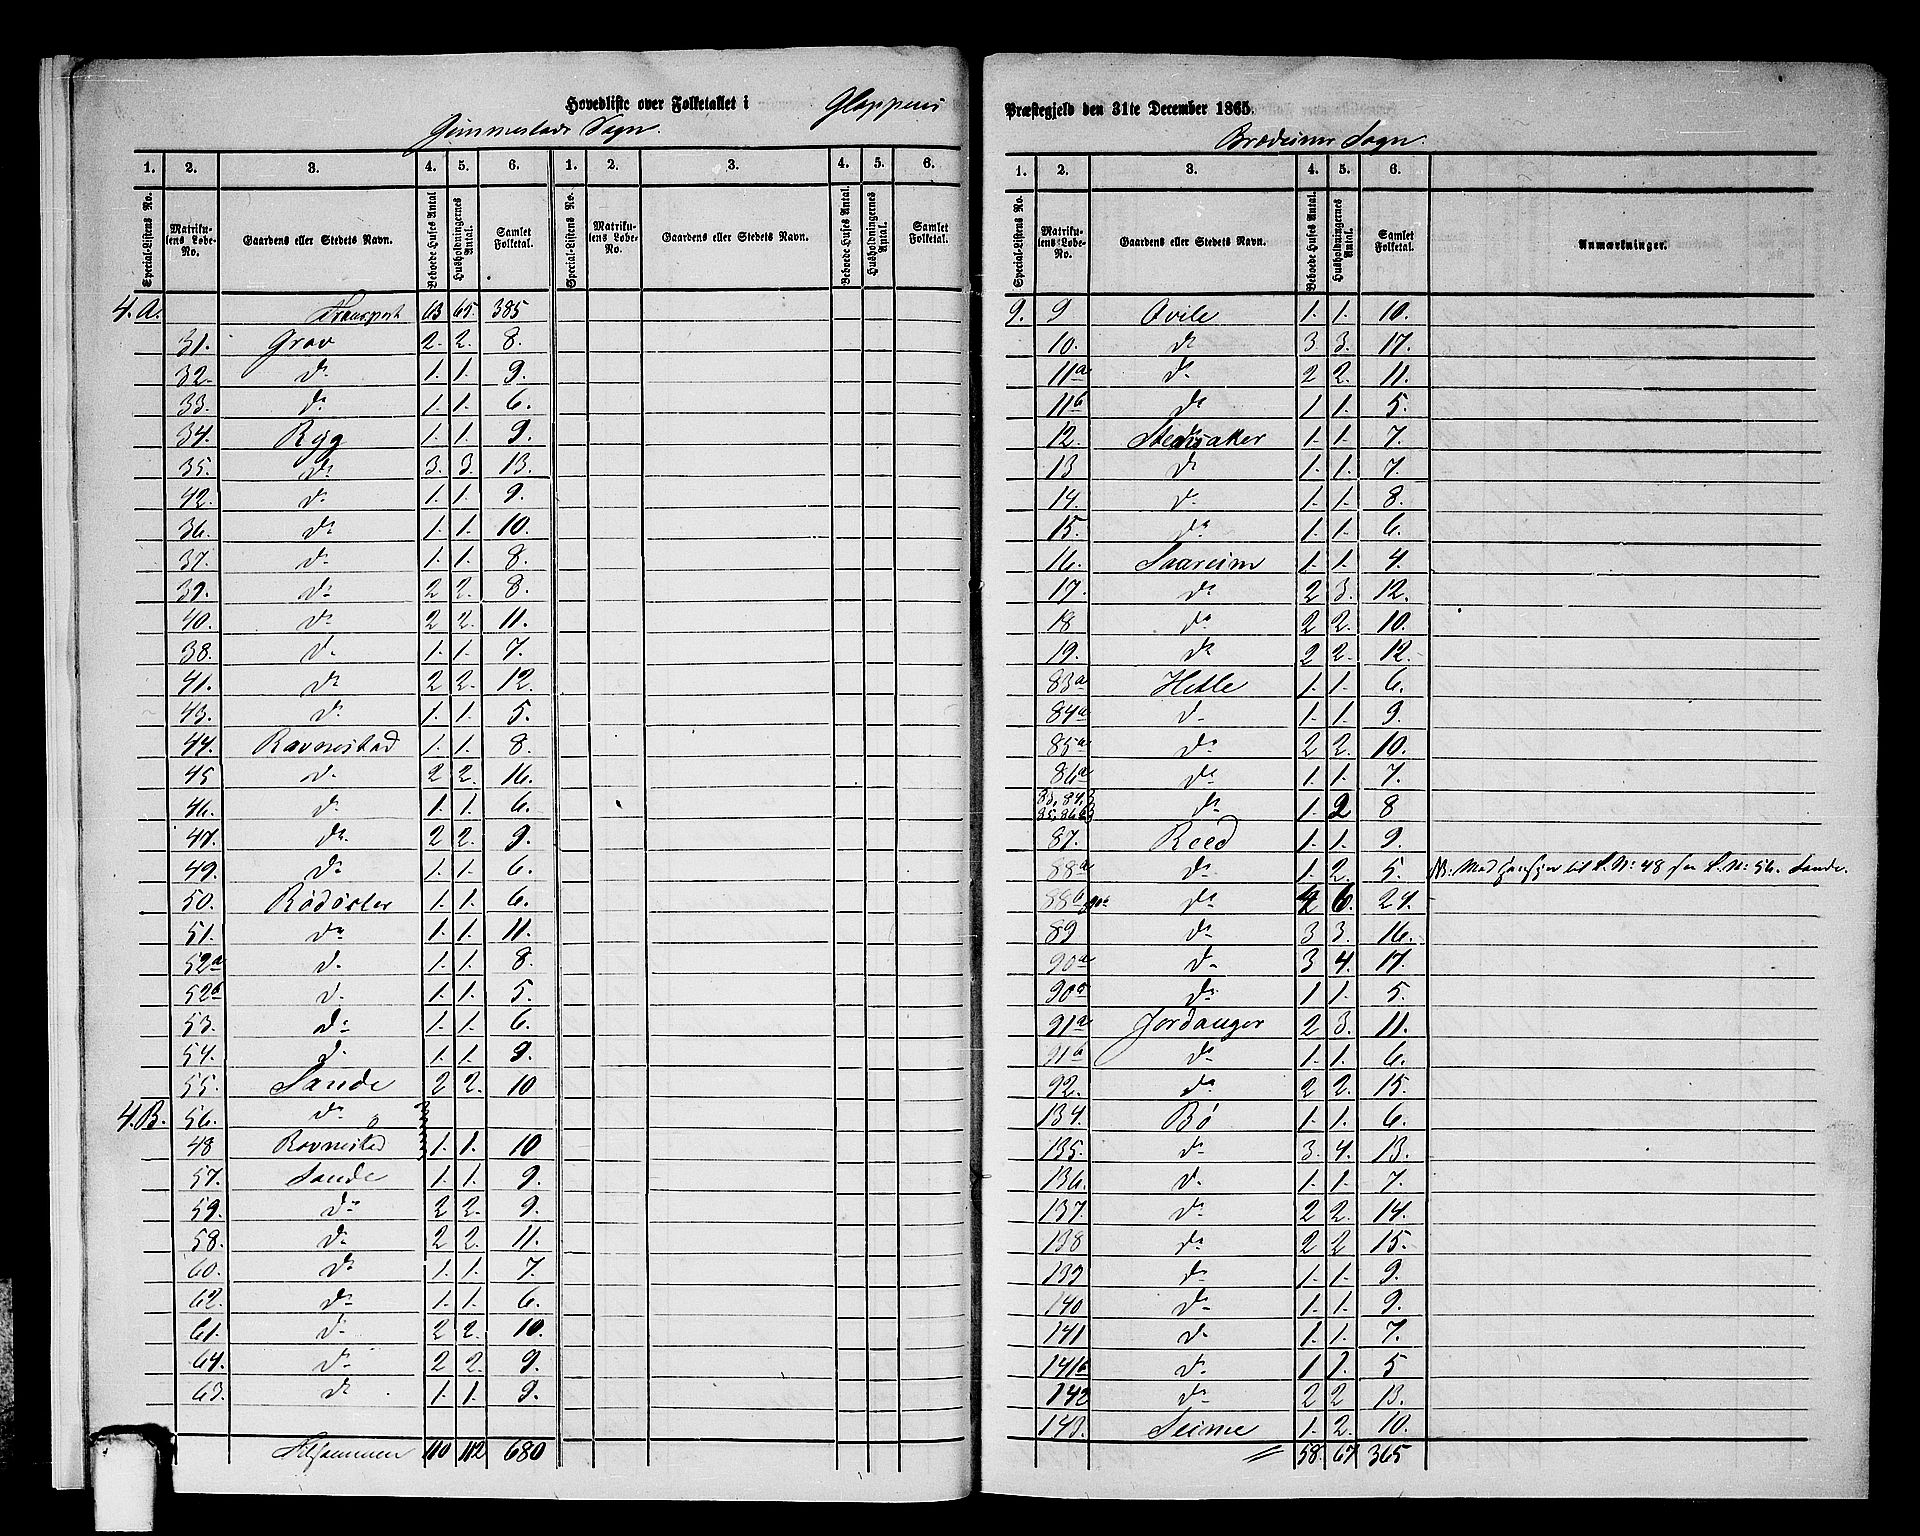 Hovedliste over Folketallet i Gloppens
Gimmestads Sogn.
1. 2. 3. 4. 5. 6. 1. 2. 3. 4. 5. 6.
Special-Listens No. Matrikulens Løbe-No. Gaardens eller Stedets Navn. Beboede Huses Antal. Husholdningernes Antal. Samlet Folketal. Special-Listens No. Matrikulens Løbe-No. Gaardens eller Stedets Navn. Beboede Huses Antal. Husholdningernes Antal. Samlet Folketal.
4.A. Transport 63 65. 385
31. Grov 2. 2. 8.
32. do 1. 1. 9.
33. do 1. 1. 6.
34. Ryg 1. 1. 9.
35. do 3. 3. 13.
42. do 1. 1. 9.
36. do 1. 1. 10.
37. do 1. 1. 8.
39. do 2 2. 8.
40. do 2 2. 11.
38. do 1. 1. 7.
41. do 2 2. 12.
43. do 1. 1. 5.
44. Ravnestad 1. 1. 8.
45 do 2 2. 16.
46. do 1. 1. 6.
47. do 2 2. 9.
49. do 1. 1. 6.
50. Rødøster 1. 1. 6.
51. do 1. 1. 11.
52a do 1. 1. 8.
52b do 1. 1. 5.
53. do 1. 1. 6.
54. do 1. 1. 9.
55. Sande 2 2. 10
4.B. 56. do
48 Ravnestad 1. 1. 10
57. Sande 1. 1. 9.
59. do 2 2. 9.
58. do 2 2. 11.
60. do 1. 1. 7.
62. do 1. 1. 6.
61. do 2 2. 10.
64. do 2 2. 9.
63. do 1. 1. 9.
Tilsammen 110 112 680
Præstegjeld den 31te December 1865.
Bredeims Sogn.
1. 2. 3. 4. 5. 6.
Special-Listens No. Matrikulens Løbe-No. Gaardens eller Stedets Navn. Beboede Huses Antal. Husholdningernes Antal. Samlet Folketal. Anmærkninger.
9. 9 Qvile 1. 1. 10.
10. do 3 3. 17.
11a do 2 2. 11.
11b do 1 1. 5.
12. aker 1. 1. 7.
13 do 1. 1. 7.
14. do 1. 1 8.
15. do 1. 1. 6.
16. Saareim 1. 1. 4.
17. do 2 3. 12.
18 do 2 2. 10.
19. do 2 2. 12.
83a Hetle 1. 1. 6.
84a do 1. 1. 9.
85a do 2 2. 10.
86a do 1. 1. 7.
83, 84, 85, 86b do 1. 2 8
87. Reed 1. 1. 9.
88a do 1. 2. 5. til L. No 48 L. No 56. Sande.
88b do 4 6. 24.
89 do 3 3. 16.
90a do 3 4. 17.
90b do 1 1. 5.
91a Jordanger 2 3. 11.
91b do 1. 1. 6.
92. do 2 2. 15.
134. Bø 1. 1. 6.
135. do 3. 4. 13.
136. do 1. 1. 7.
137. do 2 2. 14.
138 do 2 2 15.
139 do 1. 1. 9.
140 do 1. 1. 9.
141 do 1. 1. 7.
141b do 1 1. 5
142 do 2 2 13.
143. Seime 1. 2. 10.
58. 67 365